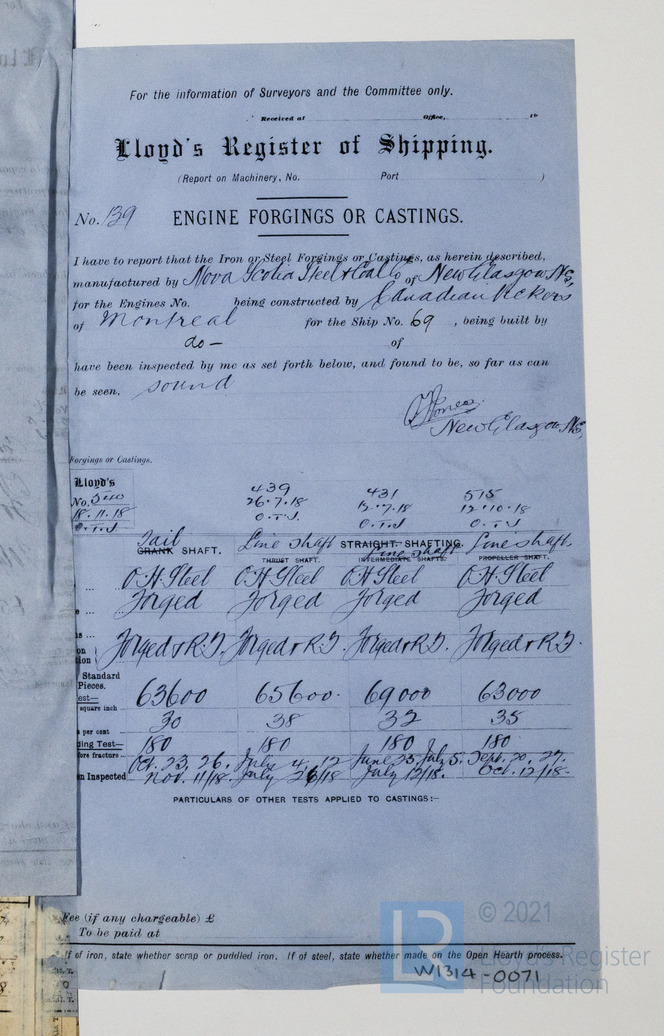 For the information of Surveyors and the Committee only.
Received at Office, 19
Lloyd's Register of Shipping.
(Report on Machinery, No. Port )
No. 139 ENGINE FORGINGS OR CASTINGS.
I have to report that the Iron or Steel Forgings or Castings, as herein described,
manufactured by Nova Scotia Steel & Coal Co of New Glasgow N.S,
for the Engines No. being constructed by Canadian Vickers
of Montreal for the Ship No. 69 , being built by
do — of
have been inspected by me as set forth below, and found to be, so far as can
be seen. sound
New Glasgow N.S,
Forgings or Castings.
Lloyd's 439 431 515
No. 540 26.7.18 12.7.18 12.10.18
18.11.18 O.T.J. O.T.J O.T.J
O.T.J
Tail Line shaft STRAIGHT SHAFTING. Line shaft
CRANK SHAFT. THRUST SHAFT. Line shaft INTERMEDIATE SHAFTS. PROPELLER SHAFT.
... O.H. Steel O.H. Steel O.H. Steel O.H. Steel
e ... Forged Forged Forged Forged
ns ...
on Forged & R.T. Forged & R.T. Forged & R.T. Forged & R.T.
tion
Standard
Pieces.
est— 63600 65600. 69000 63000
square inch
per cent 30 38 32 35
ding Test— 180 180 180 180
fore fracture Oct. 23, 26. July 4, 12 June 25, July 5. Sept. 20, 27.
n Inspected Nov. 11/18 July 26/18 July 12/18. Oct. 12/18.
PARTICULARS OF OTHER TESTS APPLIED TO CASTINGS:—
Fee (if any chargeable) £
To be paid at
If of iron, state whether scrap or puddled iron. If of steel, state whether made on the Open Hearth process.
W1314-0071
LR
© 2021
Lloyd's Register
Foundation